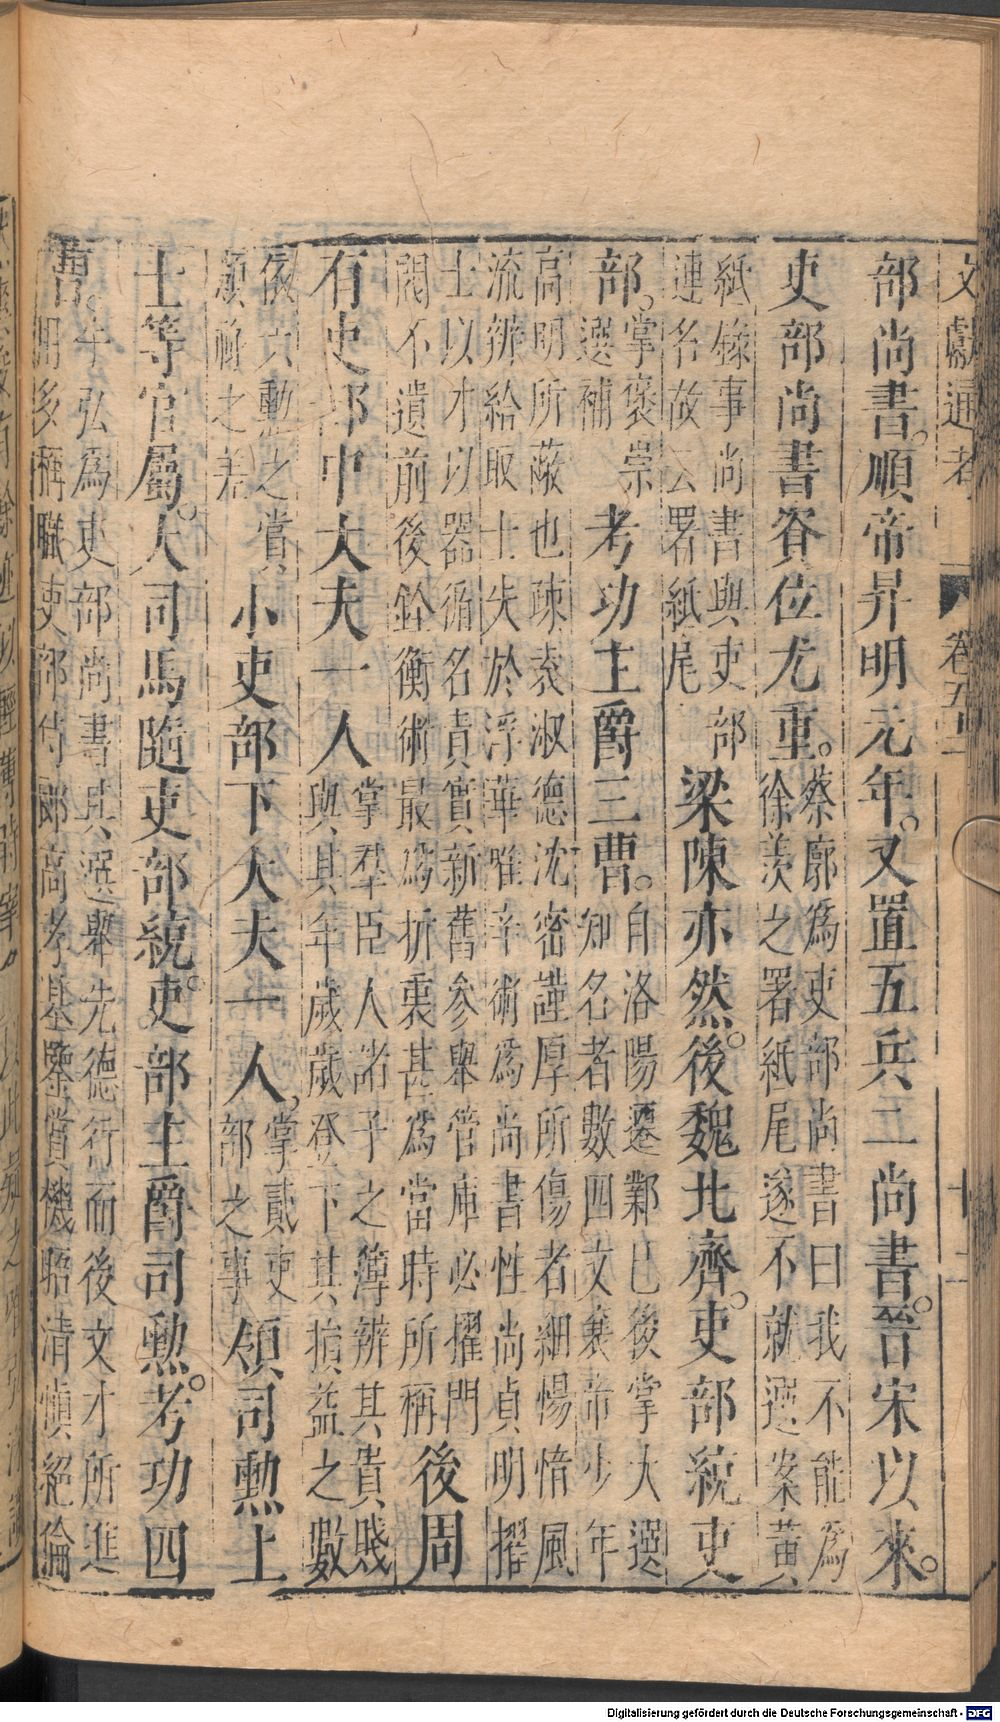 文獻通考 卷五十二 十二
部尚書。順帝昇明元年。又置五兵二尚書。晉宋以來。
吏部尚書資位尤重。
蔡廓爲吏部尚書曰我不能爲
徐羨之署紙尾遂不就選案黃
紙錄事尚書與吏部
連名故云署紙尾
梁陳亦然。後魏北齊。吏部統吏
部。
掌褒崇
選補
考功主爵三曹。
自洛陽遷鄴已後掌大選
知名者數四文襄帝少年
高明所蔽也疎袁淑德沈密謹厚所傷者細愓愔風
流辨給取士失於浮華唯辛術爲尚書性尚貞明擢
士以才以器循名責實新舊參舉管庫必擢門
閥不遺前後銓衡術最爲折衷甚爲當時所稱
後周
有吏部中大夫一人
掌羣臣人諸子之簿辨其貴賤
與其年歲歲登下其損益之數
依六勲之賞
頒祿之差
小吏部下大夫一人，
掌貳吏
部之事
領司勲上
士等官屬。大司馬隨吏部統。吏部主爵司勲。考功四
曹。
牛弘爲吏部尚書其選舉先德行而後文才所進
用多稱職吏部侍郎高孝基鑒賞機晤清愼絕倫
Digitalisierung gefördert durch die Deutsche Forschungsgemeinschaft - DFG